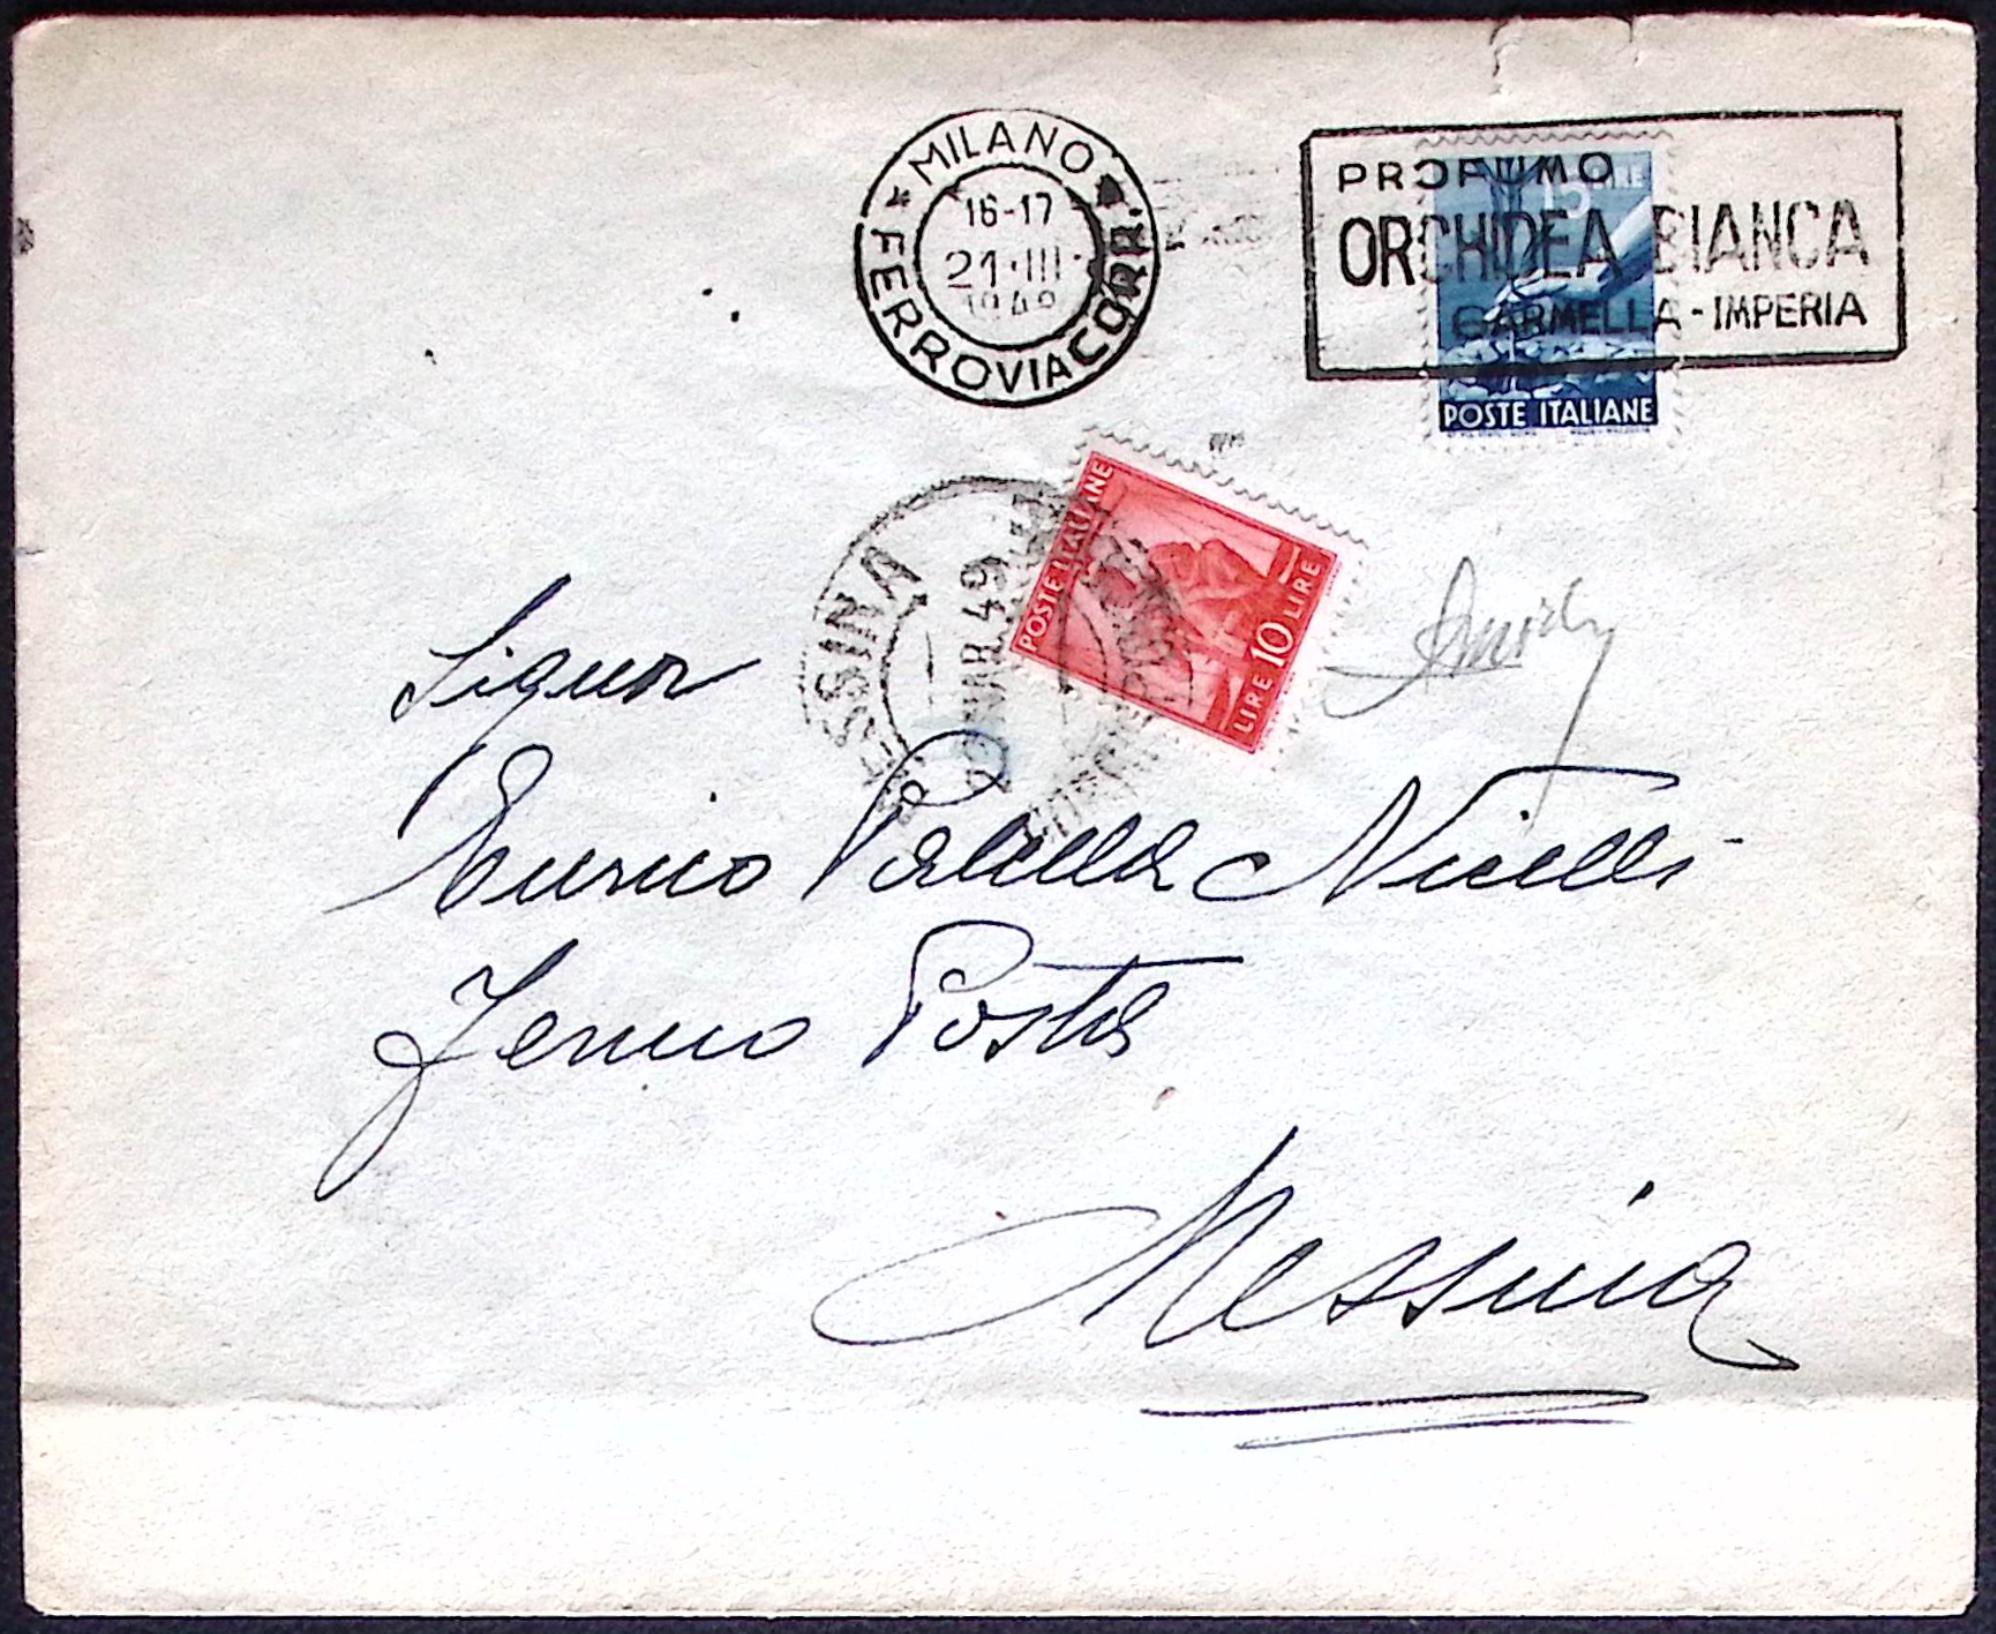 MILANO
16-17
21·III·
1949
FERROVIA CORR.
PROFUMO
ORCHIDEA BIANCA
GARMELLA - IMPERIA
15 LIRE
POSTE ITALIANE
POSTE ITALIANE
LIRE 10 LIRE
MESSINA
MAR. 49
Signor
Enrico Nicelli
Fermo Posta
Messina